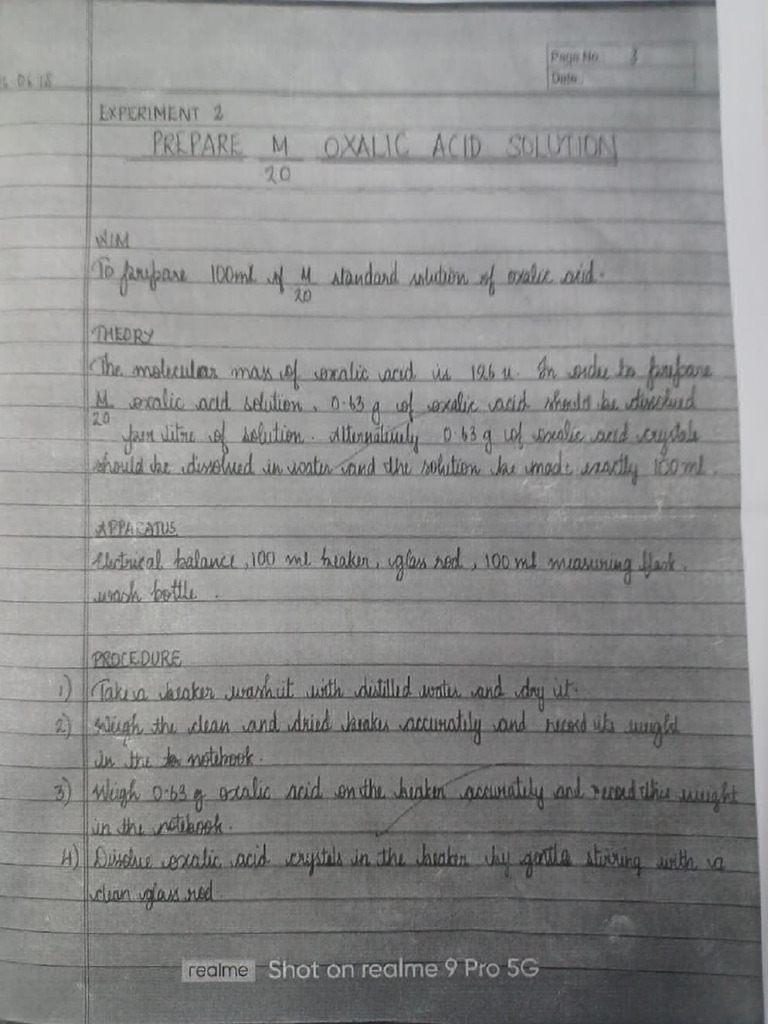 Page No. 3
Date
EXPERIMENT 2
PREPARE M/20 OXALIC ACID SOLUTION
AIM
To prepare 100ml of M/20 standard solution of oxalic acid.
THEORY
The molecular mass of oxalic acid is 126 u. In order to prepare
M/20 oxalic acid solution, 0.63 g of oxalic acid should be dissolved
per litre of solution. Alternatively 0.63 g of oxalic acid crystals
should be dissolved in water and the solution be made exactly 100 ml.
APPARATUS
Electrical balance, 100 ml beaker, glass rod, 100 ml measuring flask,
wash bottle.
PROCEDURE
1) Take a beaker wash it with distilled water and dry it.
2) Weigh the clean and dried beaker accurately and record its weight
in the notebook.
3) Weigh 0.63 g oxalic acid on the beaker accurately and record this weight
in the notebook.
4) Dissolve oxalic acid crystals in the beaker by gentle stirring with a
clean glass rod
realme Shot on realme 9 Pro 5G